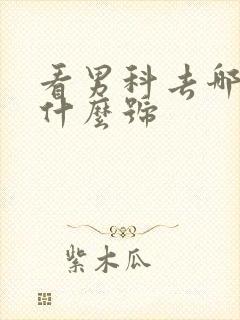 看男科去哪
什麼號
紫木瓜